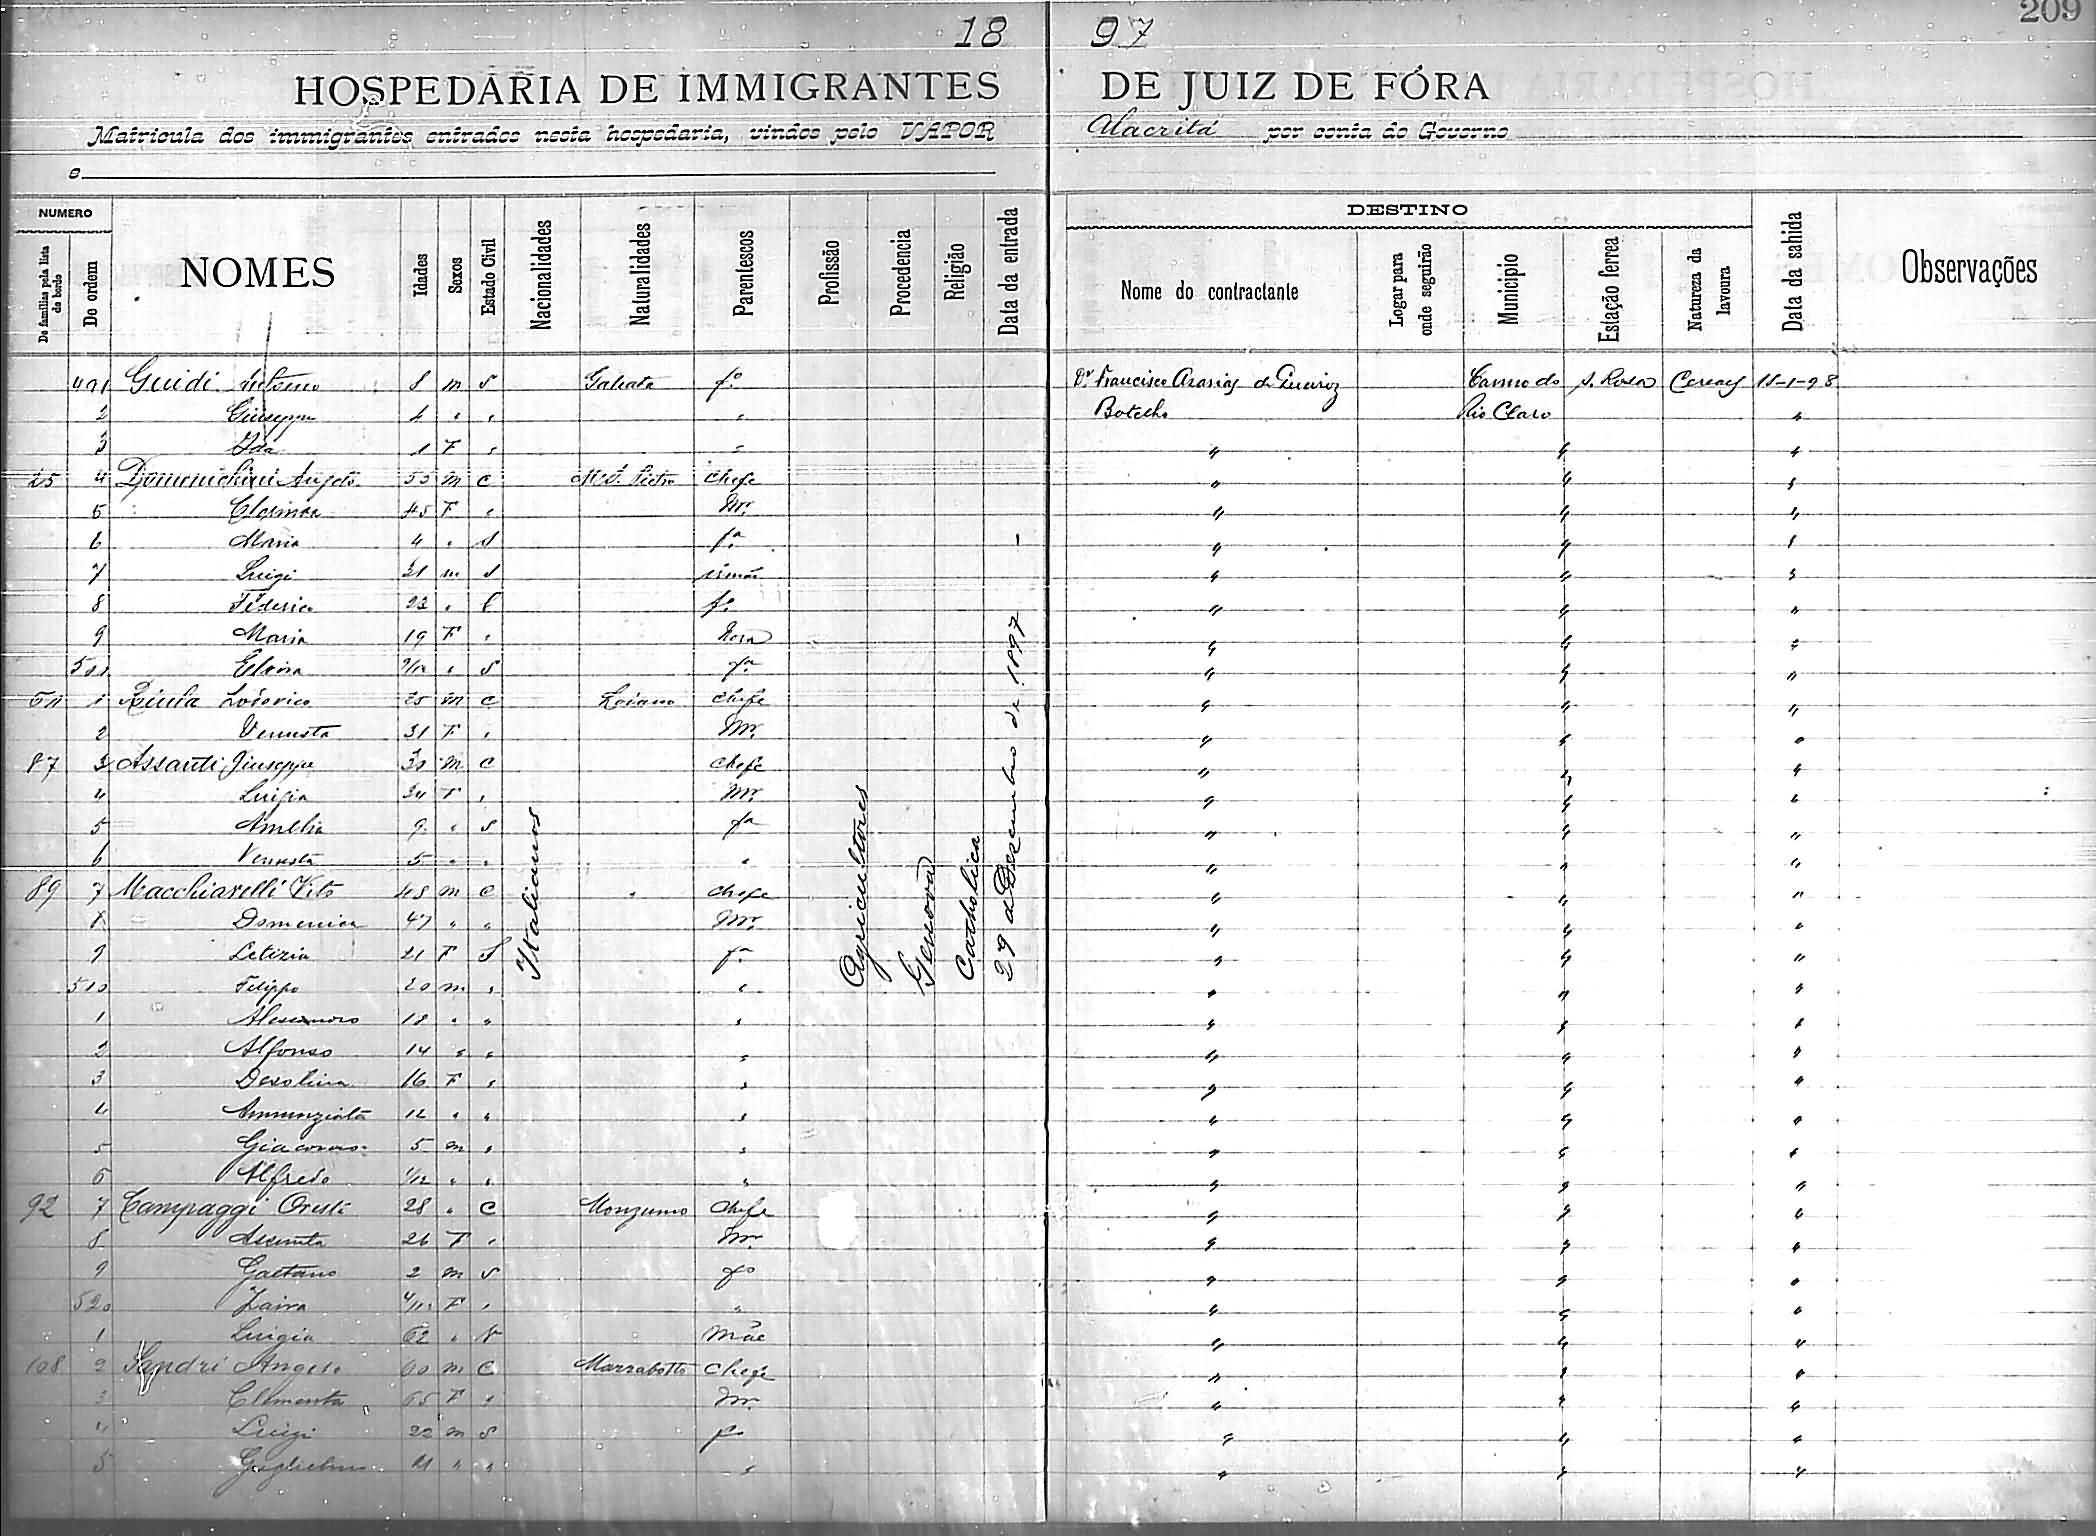 209
18 97
HOSPEDARIA DE IMMIGRANTES DE JUIZ DE FÓRA
Matricula dos immigrantes entrados nesta hospedaria, vindos pelo VAPOR por conta do Governo
e
NUMERO
De familias pela lista de bordo
De ordem
NOMES
Idades
Sexos
Estado Civil
Nacionalidades
Naturalidades
Parentescos
Profissão
Procedencia
Religião
Data da entrada
DESTINO
Nome do contractante
Logar para onde seguirão
Municipio
Estação ferrea
Natureza da lavoura
Data da sahida
Observações
491 Guidi Antonio 8 m S Galeata fº Dr Francisco de Queiroz Carmo do S. Rosa Cereaes 15-1-98
2 Giuseppe 4 " " " Botelho Rio Claro "
3 Ida 1 F " " " " "
25 4 Domenichini Angelo 55 m C M. S. Pietro Chefe " " "
5 45 F " Mr. " " "
6 Maria 4 " S fª " " "
7 Luigi 31 m S irmão " " "
8 Federico 23 " C fº " " "
9 Maria 19 F " Nora " " "
500 Elvira " S fª " " "
1 Lodovico 25 m C Loiano Chefe " " "
2 Venusta 31 F " Mr. " " "
87 3 Assanti Giuseppe 30 m C Chefe " " "
4 Luigia 34 F " Mr. " " "
5 Amelia 9 " S fª " " "
6 Venusta 5 " " " " "
89 7 Macchiavelli Vito 48 m C " Chefe " " "
8 Domenica 47 " " Mr. " " "
9 Letizia 21 F S fª " " "
510 Filippo 20 m " " " " "
1 18 " " " " " "
2 Alfonso 14 " " " " " "
3 Desolina 16 F " " " " "
4 Annunziata 12 " " " " " "
5 Giacomo 5 m " " " " "
6 Alfredo 1/12 " " " " " "
92 7 Campaggi Oreste 28 " C Monzuno Chefe " " "
8 Assunta 26 F " Mr. " " "
9 Gaetano 2 m S fº " " "
520 Zaira F " " " " "
1 Luigia 62 " V Mãe " " "
108 2 Sandri Angelo 60 m C Marzabotto Chefe " " "
3 Clementa 65 F " Mr. " " "
4 Luigi 22 m S fº " " "
5 Guglielmo 21 " " " " " "
Italianos
Agricultores
Genova
Catholica
29 de Dezembro de 1897